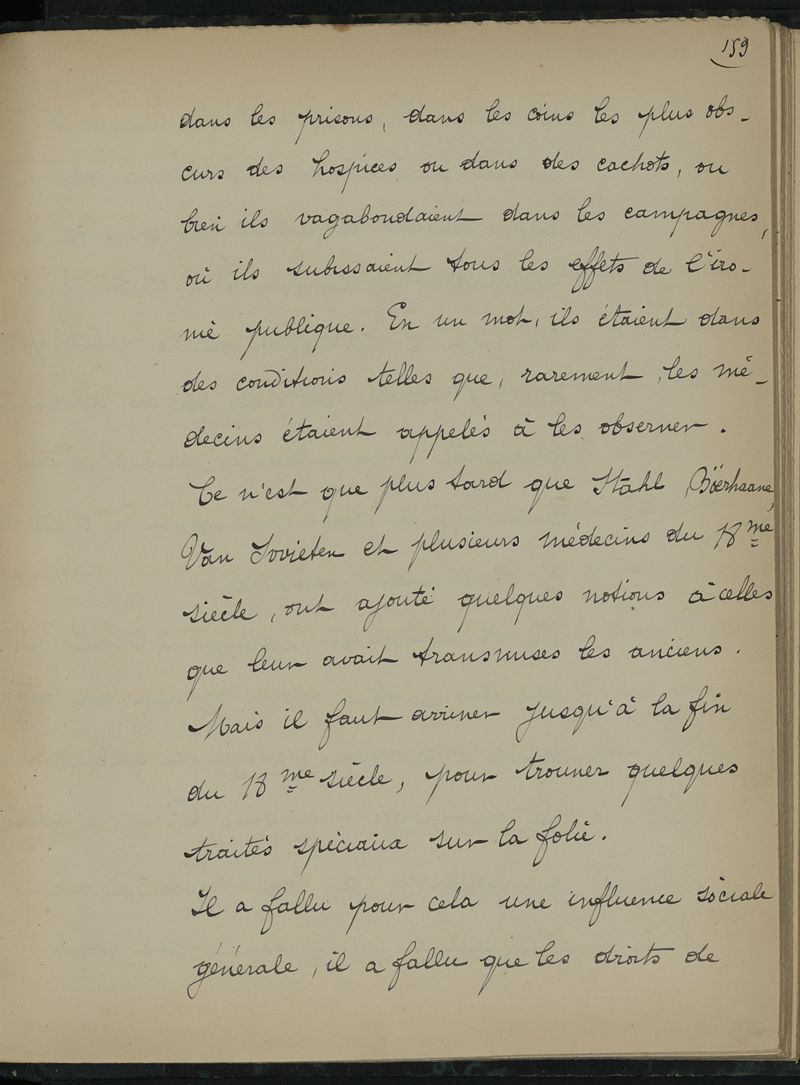 159
dans les prisons, dans les coins les plus obs-
curs des hospices ou dans des cachots, ou
bien ils vagabondaient dans les campagnes,
où ils subissaient tous les effets de l'iro-
nie publique. En un mot, ils étaient dans
des conditions telles que, rarement, les mé-
decins étaient appelés à les observer.
Ce n'est que plus tard que Stahl Böerhaave,
Van Swieten et plusieurs médecins du 18me
siècle, ont ajouté quelques notions à celles
que leur avait transmises les anciens.
Mais il faut arriver jusqu'à la fin
du 18me siècle, pour trouver quelques
traités spéciaux sur la folie.
Il a fallu pour cela une influence sociale
générale, il a fallu que les droits de